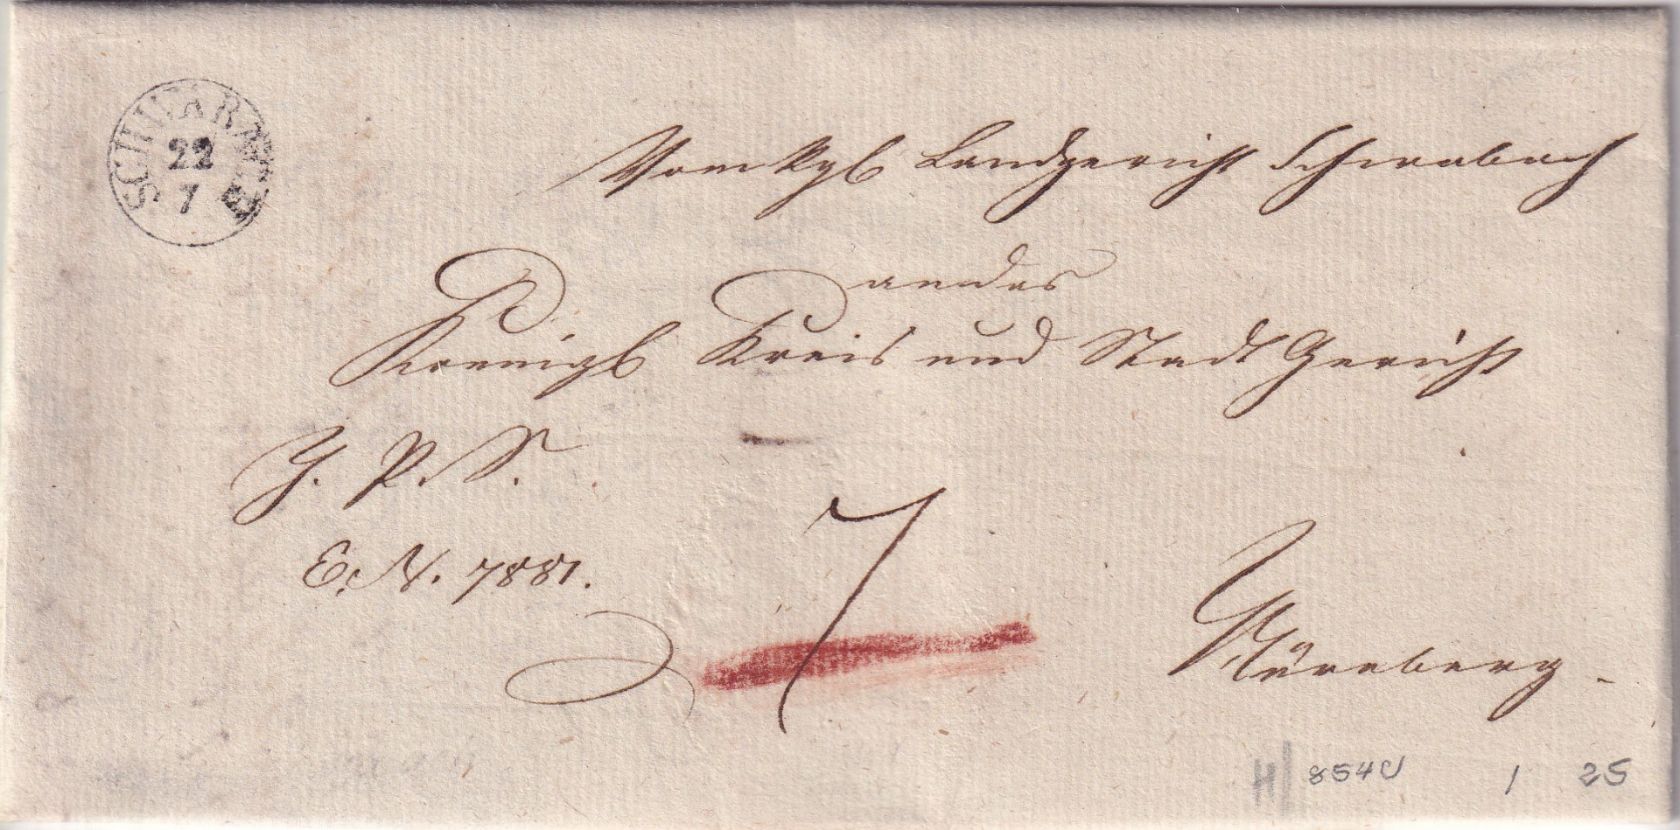 SCHWABACH
22
7
Vom Kgl Landgericht Schwabach
an das
Koenigl Kreis und Stadt Gericht
J. P. S.
E. N. 7881.
7
Nürnberg
H 854U 1 25